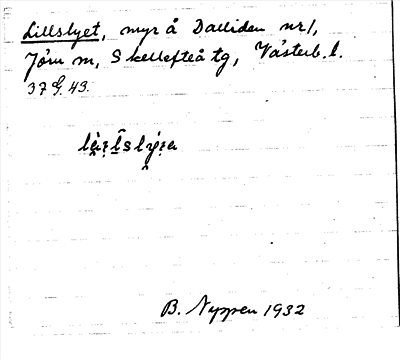 Lillslyet, myr å Dalliden nr 1,
Jörn sn, Skellefteå tg, Västerb. l.
37 G. 43.
B. Nyppen 1932